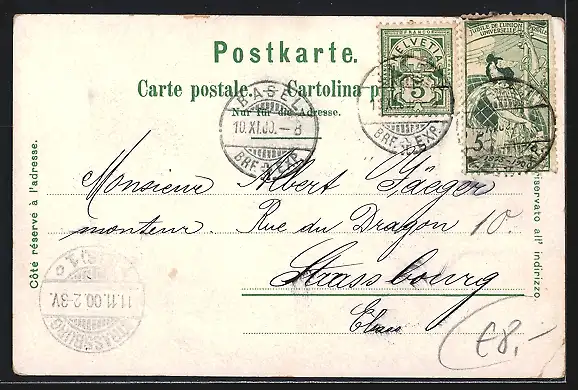 Postkarte.
Carte postale. Cartolina
Nur für die Adresse.
HELVETIA
5
JUBILÉ DE L'UNION
UNIVERSELLE
5
BASEL
10.XI.00.-8
BRF. EXP.
Côté réservé à l'adresse.
riservato all' indirizzo.
Monsieur Albert Jaeger
monteur. Rue du Dragon 10.
Strassbourg
Elsass
11.11.00.2-3V.
STRASSBURG
€8,-